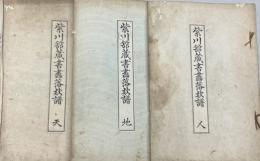 紫川舘蔵書畫落款譜 人
紫川舘蔵書畫落款譜 地
紫川舘蔵書畫落款譜 天